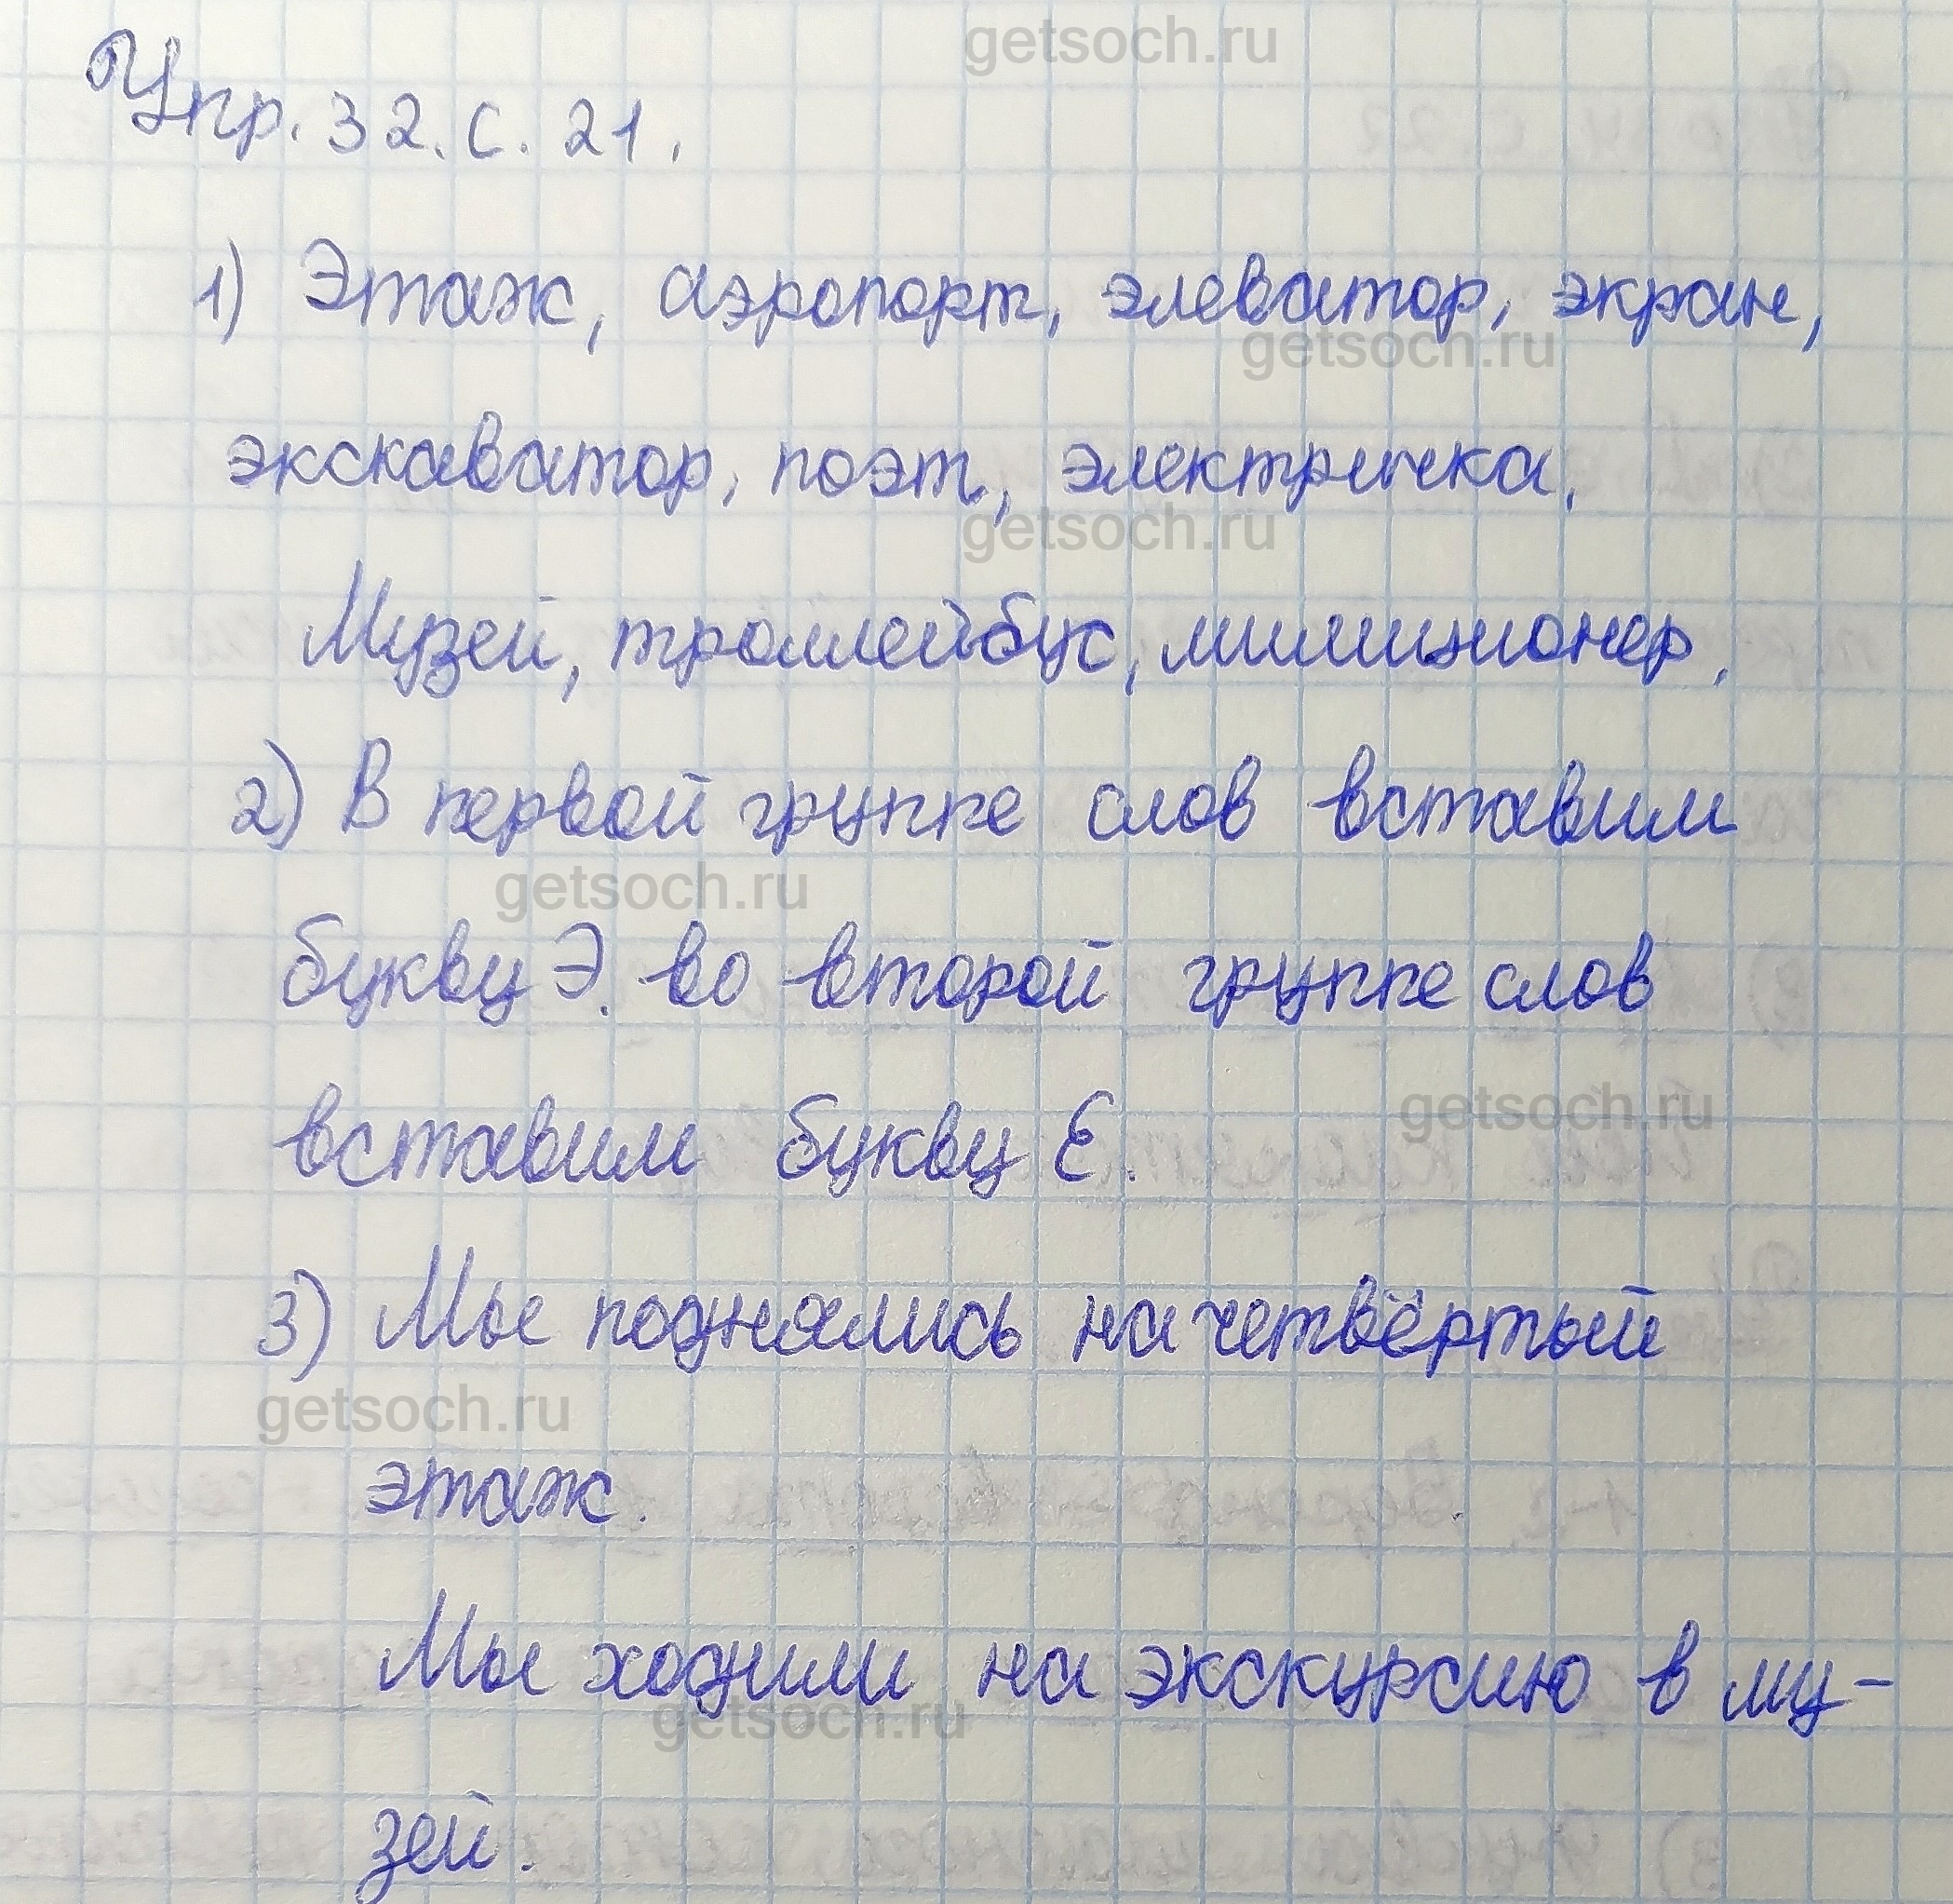 getsoch.ru
Упр. 32. с. 21.
1) Этаж, аэропорт, элеватор, экран,
getsoch.ru
экскаватор, поэт, электричка.
getsoch.ru
Музей, троллейбус, милиционер.
2) В первой группе слов вставим
getsoch.ru
букву Э. во второй группе слов
getsoch.ru
вставим букву Е.
3) Мы поднялись на четвёртый
getsoch.ru
этаж.
Мы ходили на экскурсию в му-
getsoch.ru
зей.